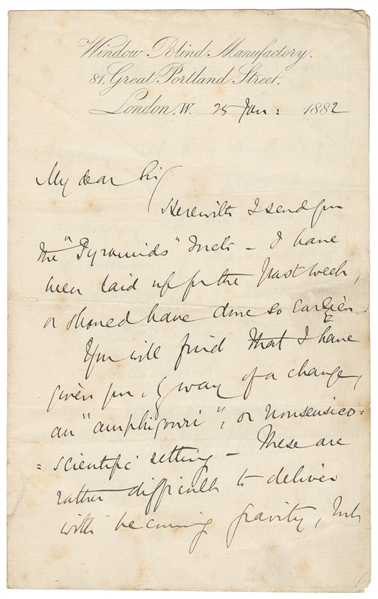 Window Blind Manufactory.
81. Great Portland Street.
London. W. 25 Jan: 1882
My dear Sir
Herewith I send you
the "Pyramids" Trick - I have
been laid up for the past week,
or should have done so earlier.
You will find that I have
given you, by way of a change,
an "amphigouri", or nonsensico-
-scientific setting - These are
rather difficult to deliver
with becoming gravity, but